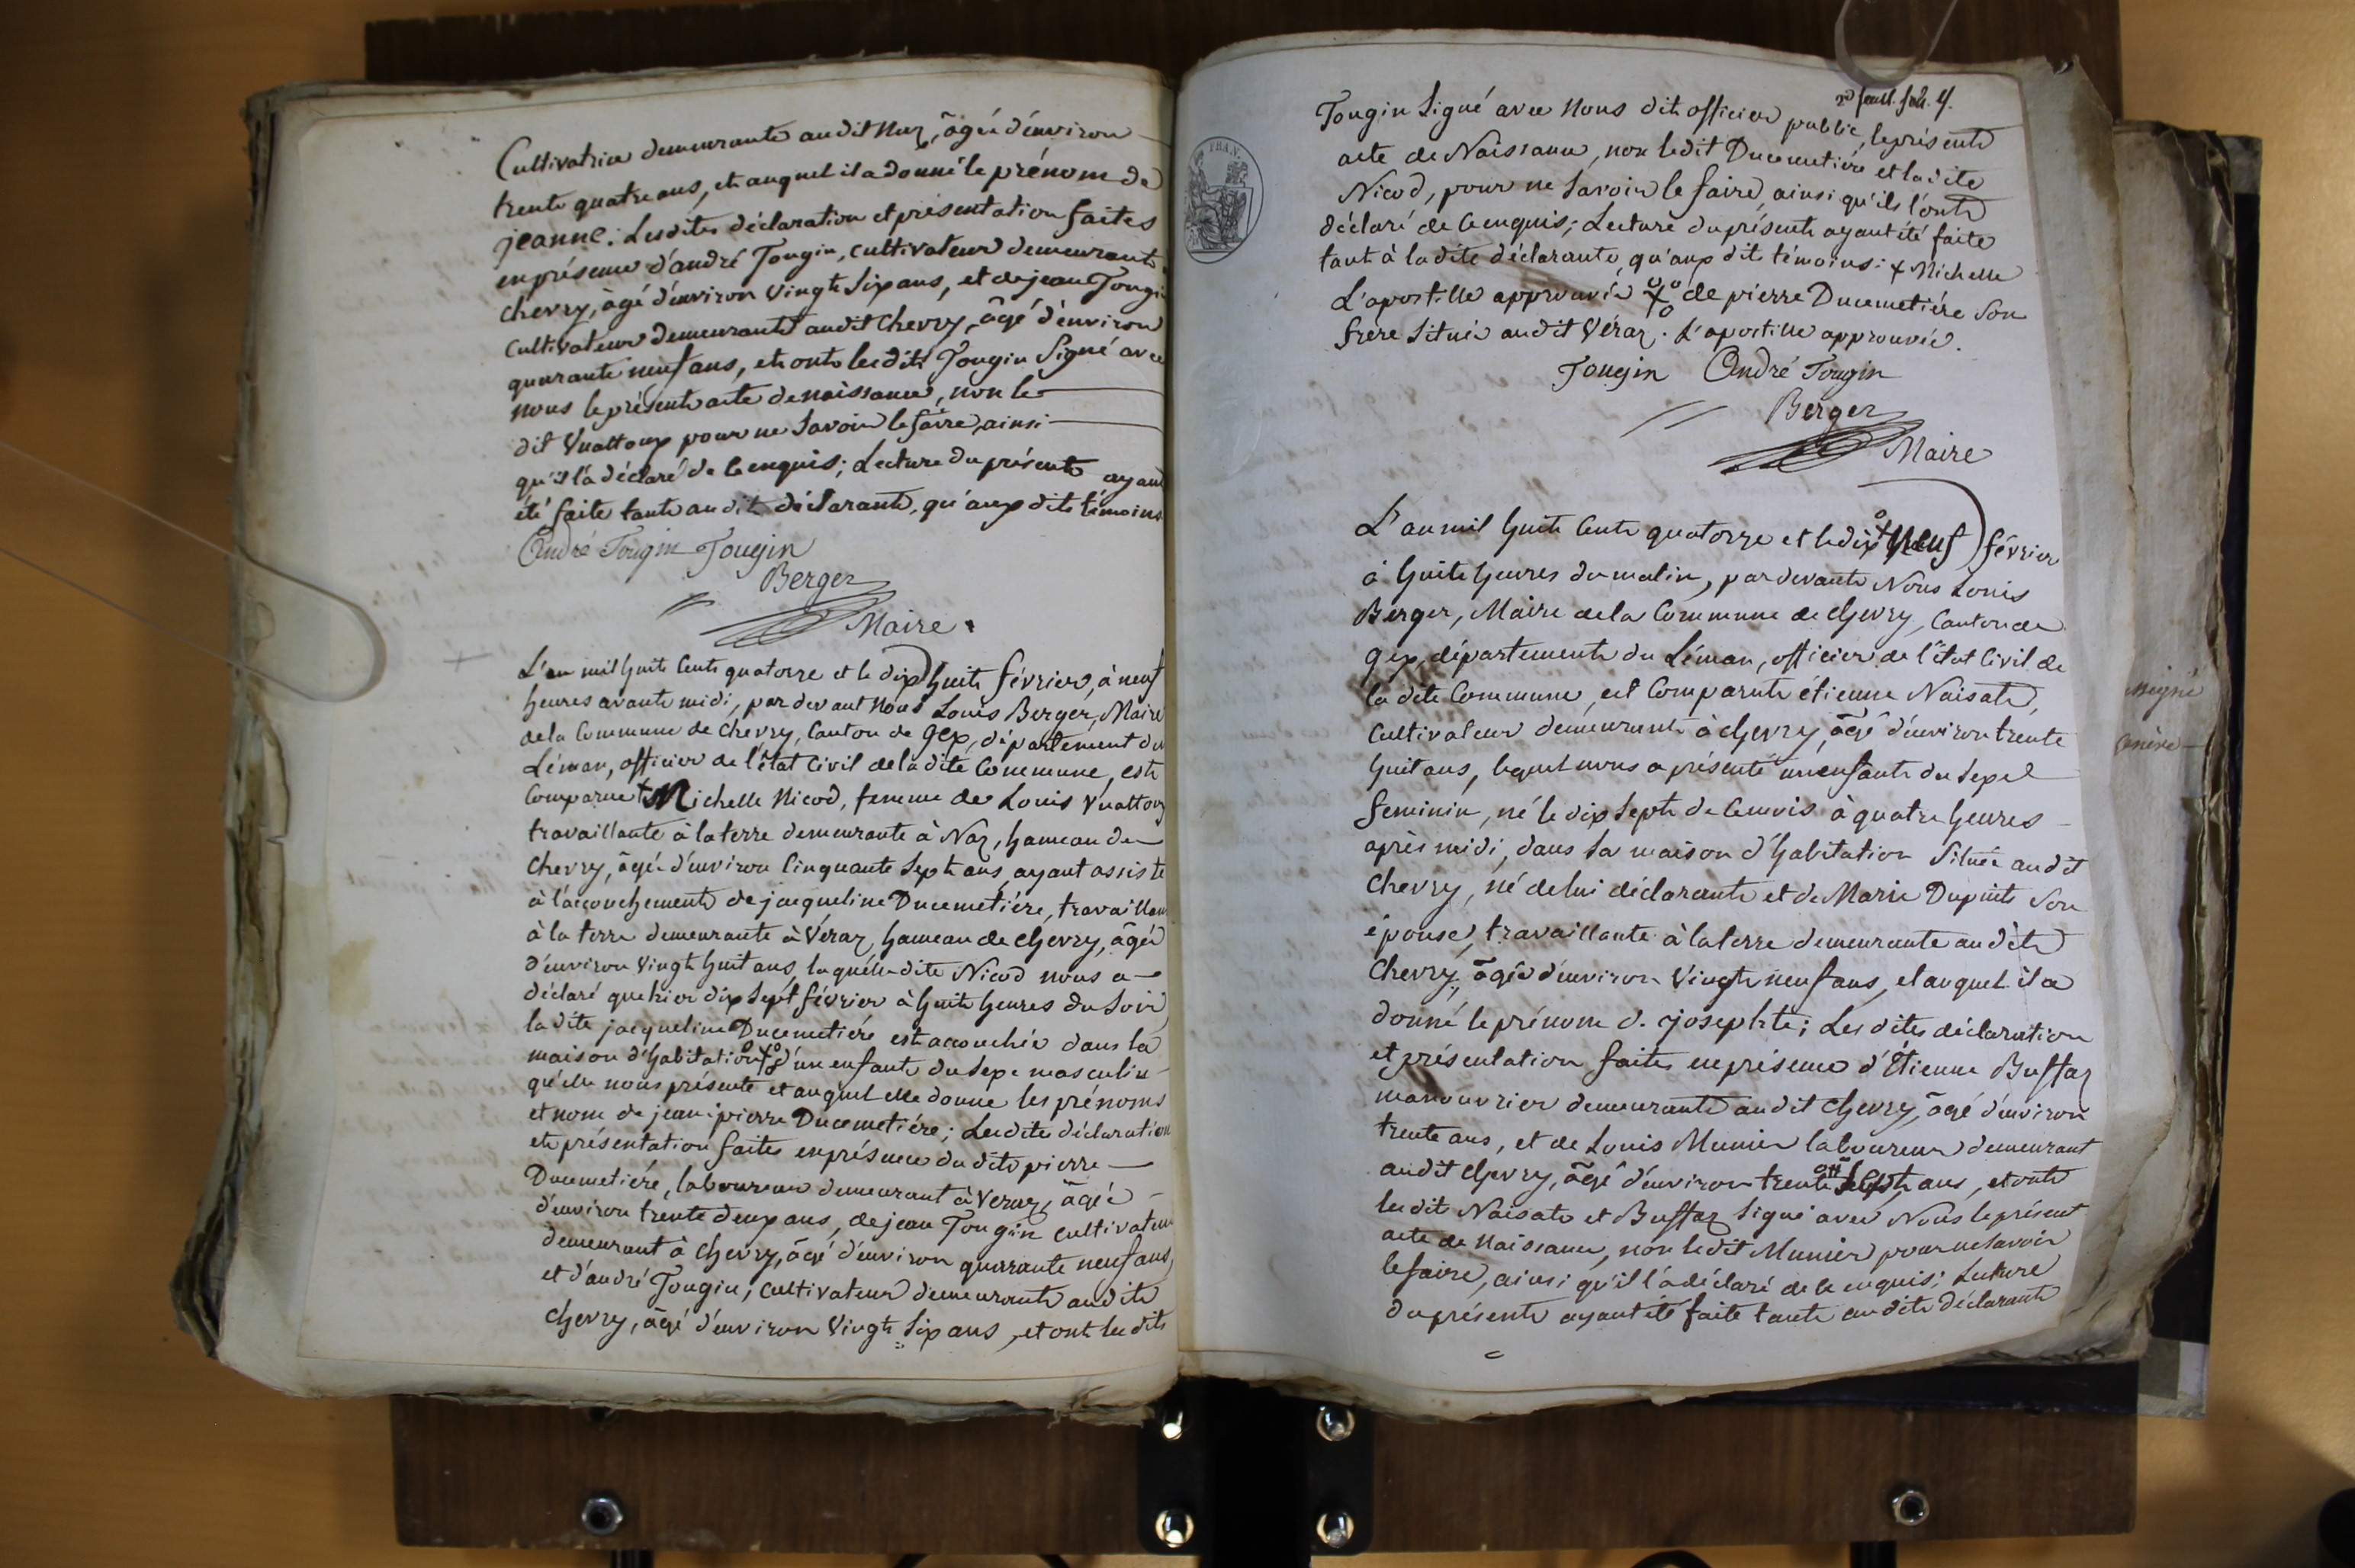 Cultivatrice demeurante audit Naz, âgée d'environ
trente quatre ans, et auquel il a donné le prénom de
jeanne. Lesdites déclaration et présentation faites
en présence d'andré Tougin, cultivateur demeurant
chevry, âgé d'environ vingt six ans, et de jean Tougin
cultivateur demeurant audit chevry, âgé d'environ
quarante neuf ans, et ont lesdits Tougin signé avec
nous le présent acte de naissance, non le
dit Vuattoux pour ne savoir le faire, ainsi
qu'il l'a déclaré de ce enquis; Lecture du présent ayant
été faite tant audit déclarant, qu'aux dits témoins
André Tougin Tougin
Berger
Maire.
L'an mil huit cent quatorze et le dix huit février, à neuf
heures avant midi, par devant Nous Louis Berger, Maire
de la Commune de Chevry, Canton de gex, département du
Léman, officier de l'état Civil de la dite Commune, est
Comparue + Michelle Nicod, femme de Louis Vuattoux
travaillante à la terre demeurante à Naz, hameau de
Chevry, âgée d'environ cinquante sept ans, ayant assisté
à l'accouchement de jacqueline Ducemetiére, travaillant
à la terre demeurante à Véraz, hameau de chevry, âgée
d'environ vingt huit ans, laquelle dite Nicod nous a
déclaré que hier dix sept février à huit heures du soir
la dite jacqueline Ducemetiére est accouchée dans la
maison d'habitation d'un enfant du sexe masculin
qu'elle nous présente et auquel elle donne les prénoms
et nom de jean pierre Ducemetiére; Lesdites déclaration
et présentation faites en présence dudit pierre
Ducemetiére, laboureur demeurant à Veraz, âgée
d'environ trente deux ans, de jean Tougin cultivateur
demeurant à Chevry, âgé d'environ quarante neuf ans,
et d'andré Tougin, cultivateur demeurant audit
chevry, âgé d'environ vingt six ans, et ont lesdits
2d feuil. fol. 4.
Tougin signé avec Nous dit officier public, le présent
acte de Naissance, non ledit Ducemetiére et ladite
Nicod, pour ne savoir le faire, ainsi qu'ils l'ont
déclaré de ce enquis; Lecture du présent ayant été faite
tant à la dite déclarante, qu'aux dits témoins: + Michelle
L'apostille approuvée de pierre Ducemetiére son
frere située audit Véraz. L'apostille approuvée.
Tougin André Tougin
Berger
Maire
L'an mil huit cent quatorze et le dix neuf février
à huit heures du matin, par devant Nous Louis
Berger, Maire de la Commune de chevry, Canton de
gex, département du Léman, officier de l'état Civil de
la dite Commune, est comparut étienne Naisat,
Cultivateur demeurant à chevry, âgé d'environ trente
huit ans, lequel nous a présenté un enfant du sexe
feminin, né le dix sept de ce mois à quatre heures
après midi, dans sa maison d'habitation située audit
Chevry, né de lui déclarant et de Marie Dupuits son
épouse, travaillante à la terre demeurante audit
Chevry, âgée d'environ vingt neuf ans, et auquel il a
donné le prénom de josephte; Lesdites déclaration
et présentation faites en présence d'Étienne Buffaz
manouvrier demeurant audit Chevry, âgé d'environ
trente ans, et de Louis Munier laboureur demeurant
audit chevry, âgé d'environ trente sept ans, et ont
lesdits Naisat et Buffaz signé avec Nous le présent
acte de Naissance, non ledit Munier pour ne savoir
le faire, ainsi qu'il l'a déclaré de ce enquis; Lecture
du présent ayant été faite tant audit déclarant